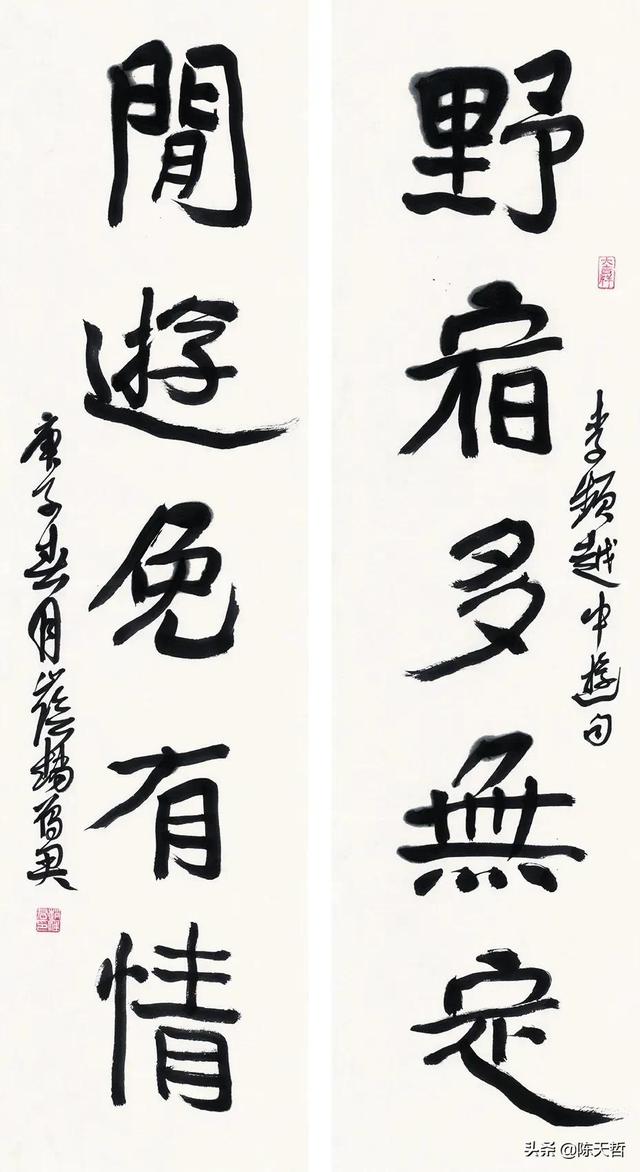 野宿多無定
李頻越中遊句
大吉祥
閒遊免有情
庚子春月
头条 @陈天哲